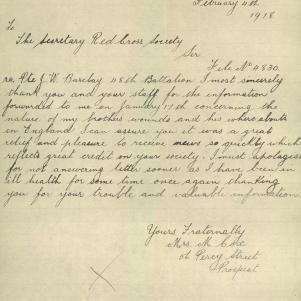 February 4th
1918
To
The Secretary Red Cross Society
Sir
File No 4830.
re, Pte J. W. Barclay 48th Battalion I most sincerely
thank you and your staff for the information
forwarded to me on January 17th concerning the
nature of my brothers wounds and his where abouts
in England I can assure you it was a great
relief and pleasure to receive news so quickly which
reflects great credit on your society. I must apologise
for not answering letter sooner as I have been in
ill health for some time once again thanking
you for your trouble and valuable information
Yours Fraternally
Mrs. M
Percy Street
Prospect